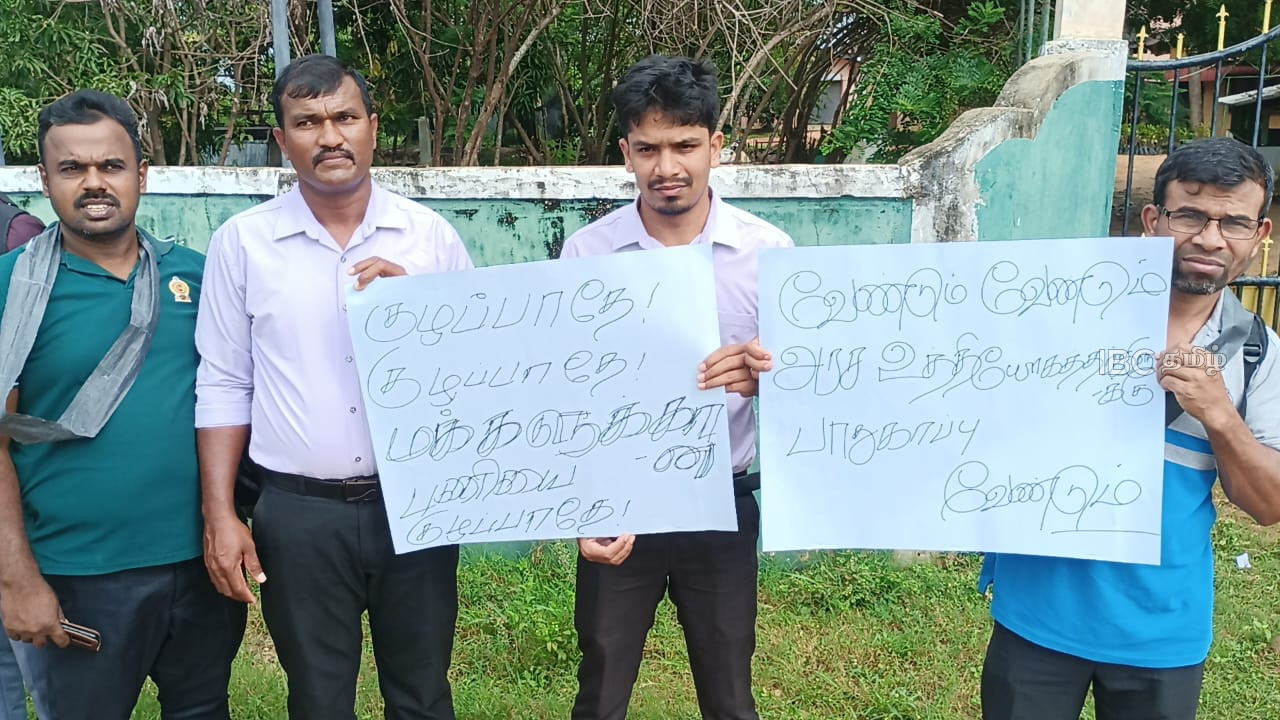 குழப்பாதே!
குழப்பாதே!
மக்களுக்கா
-ன
பணியை
குழப்பாதே!
வேண்டும் வேண்டும்
அரச உத்தியோகத்தரு
-க்கு
பாதுகாப்பு
வேண்டும்
IBC தமிழ்